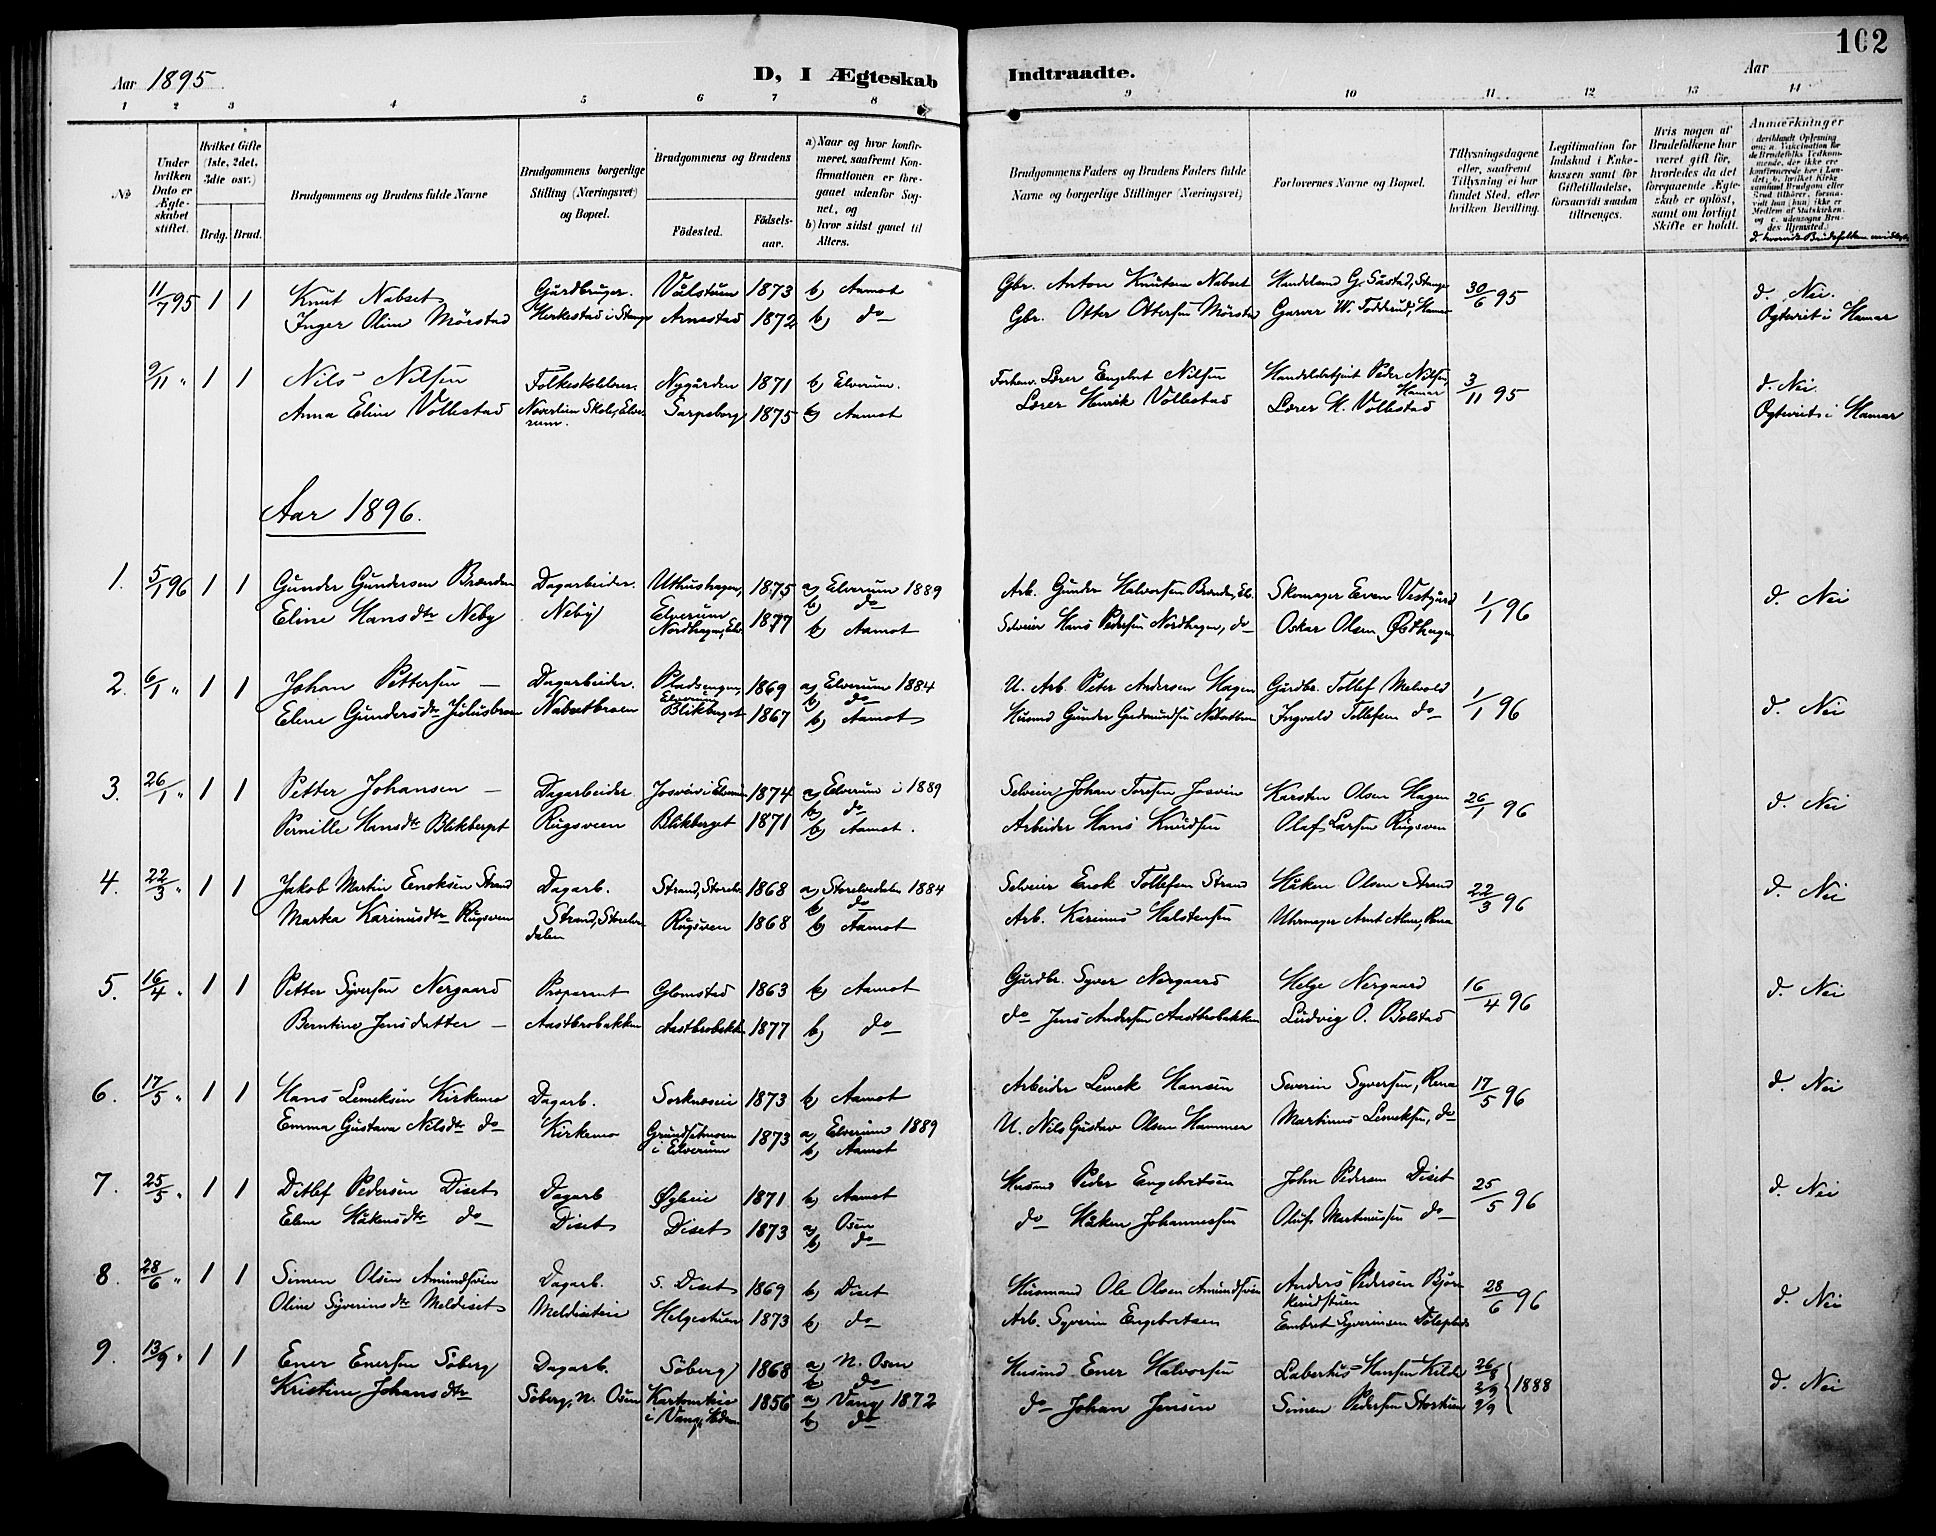 102
Aar 1895
D, I Ægteskab Indtraadte.
Aar
1 2 3 4 5 6 7 8 9 10 11 12 13 14
№
Under hvilken Dato er Ægteskabet stiftet.
Hvilket Gifte (1ste, 2det, 3die osv.)
Brdg. Brud.
Brudgommens og Brudens fulde Navne
Brudgommens borgerlige Stilling (Næringsvei) og Bopæl.
Brudgommens og Brudens
Fødested.
Fødselsaar.
a) Naar og hvor konfirmeret, saafremt Konfirmationen er foregaaet udenfor Sognet, og
b) hvor sidst gaaet til Alters.
Brudgommens Faders og Brudens Faders fulde Navne og borgerlige Stillinger (Næringsvei)
Forlovernes Navne og Bopæl.
Tillysningsdagene eller, saafremt Tillysning ei har fundet Sted, efter hvilken Bevilling.
Legitimation for Indskud i Enkekassen samt for Giftetilladelse, forsaavidt saadan tiltrænges.
Hvis nogen af Brudefolkene har været gift før, hvorledes da det foregaaende Ægteskab er opløst, samt om lovligt Skifte er holdt.
Anmærkninger
11/7 95 1 1 Knut Nabset Gårdbruger. Vålstuen 1873 b) Aamot Gbr. Anton Knutsen Nabset Handelsmd G. Såstad, Stange 30/6 95 d. Nei.
Inger Oline Mørstad Herkestad i Stange Arnestad 1872 b) do Gbr. Otter Ottersen Mørstad Garver W. Todderud, Hamar Ogteviet i Hamar
9/11 " 1 1 Nils Nilsen Folkeskolelærer. Nygården 1871 b) Elverum. Forhenv. Lærer Engebret Nilsen Handelsbetjent Peder Nilsen, Hamar 3/11 95 d. Nei.
Anna Eline Vollestad Sarpsborg 1875 b) Aamot Lærer Henrik Vollestad Lærer H. Vollestad Ogteviet i Hamar
Aar 1896.
1. 5/1 96 1 1 Gunder Gundersen Brænden Dagarbeider. Uthushagen, Elverum 1875 a) Elverum 1889 b) do Arb. Gunder Halvorsen Brænden, Elv. Skomager Even Vestgård 1/1 96 d. Nei
Eline Hansdtr Neby Neby Nordhagen, Elv. 1877 b) Aamot Selveier Hans Pedersen Nordhagen, do Oskar Olsen Østhagen
2. 6/1 " 1 1 Johan Pettersen — Dagarbeider. Pladsengen, Elverum 1869 a) Elverum 1884 b) do U. Arb. Peter Andersen Hagen Gårdbr. Tollef Melvold 1/1 96 d. Nei
Elene Gundersdtr Julusbraaen Nabsetbraaen Blikberget 1867 b) Aamot Husmd Gunder Gudmundsen Ingvald Tollefsen do
3. 26/1 " 1 1 Petter Johansen — Dagarbeider Josvein i Elverum 1874 a) Elverum i 1889 b) do Selveier Johan Torsten Josvein Karsten Olsen Hagen 26/1 96 d. Nei
Pernille Hansdtr Blikberget Rugsveen Blikberget 1871 b) Aamot. Arbeider Hans Knudsen Olaf Larsen Rugsveen
4. 22/3 " 1 1 Jakob Martin Enoksen Strand Dagarb. Strand, Storelv. 1868 a) Storelvedalen 1884 b) do Selveier Enok Tollefsen Strand Håken Olsen Strand 22/3 96 d. Nei
Martea Karinusdtr Rugsveen Strand, Storelvdalen Rugsveen 1868 b) Aamot Arb. Karinus Halstensen Uhrmager Arnt Alme, Rena
5. 16/4 " 1 1 Petter Syversen Nergaard Proprent Glomstad 1863 b) Aamot Gårdbr. Syver Nergaard Helge Nergaard 16/4 96 d. Nei
Berntine Jensdatter — Aastbrobakken Aastbrobakken 1877 b) do do Jens Andersen Aastbrobakken Ludvig O. Bolstad
6. 17/5 " 1 1 Hans Lemeksen Kirkemo Dagarb. Sorknæseie 1873 b) Aamot Arbeider Lemek Hansen Severin Syversen, Rena 17/5 96 d. Nei
Emma Gustava Nilsdtr do Kirkemo Grundsetmoen i Elverum 1873 a) Elverum 1889 b) Aamot U. Nils Gustav Olsen Hammer Martinus Lemeksen, do
7. 25/5 " 1 1 Ditlef Pedersen Diset Dagarb Øgleie 1871 b) Aamot Husmd Peder Engebretsen John Pedersen Diset 25/5 96 d. Nei
Elene Håkensdtr do Diset Diset 1873 a) Osen b) do do Håken Johannessen Oluf Martinussen do
8. 28/6 " 1 1 Simen Olsen Amundsveen Dagarb. S. Diset 1869 b) Diset Husmand Ole Olsen Amundsveen Anders Pedersen 28/6 96 d. Nei
Oline Syverinsdtr Meldiset Meldiseteie Helgestuen 1873 b) do Arb. Syverin Engebretsen Embret Syverinsen
9. 13/9 " 1 1 Ener Enersen Søberg Dagarb. Søberg 1868 a) N. Osen b) do Husmd Ener Halvorsen Labertus Hansen Kilde 26/8 2/9 9/9 1888 d. Nei
Kristine Johansdtr Søberg, N. Osen i Vang, Hedm. 1856 a) Vang 1872 b) do do Johan Jensen Simen Pedersen Stortuen